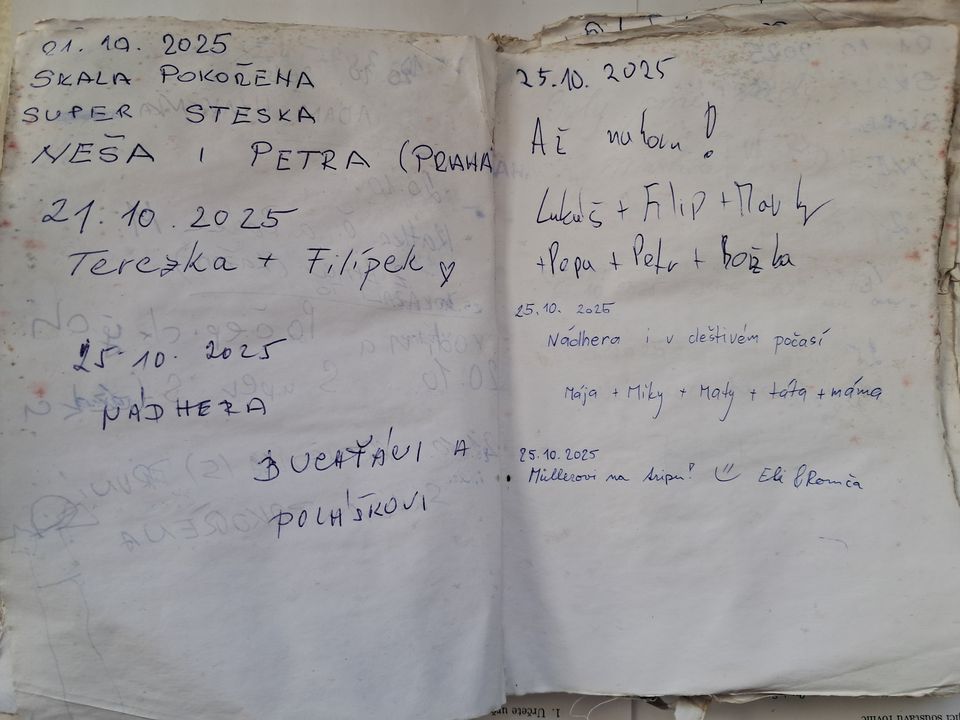 21.10.2025
SKALA POKOŘENA
SUPER STESKA
NEŠA I PETRA (PRAHA
21.10.2025
Terezka + Filípek ♡
25.10.2025
NÁDHERA
BUCAŤÁVI A
POLÁŠKOVI
25.10.2025
Až nahoru!
Lukáš + Filip +
+Pepa + Petr + Božka
25.10.2025
Nádhera i v deštivém počasí
Mája + Miky + Maty + táta + máma
25.10.2025
Müllerovi na tripu! Eli & Romča
1. Určete
soustavu rovnic